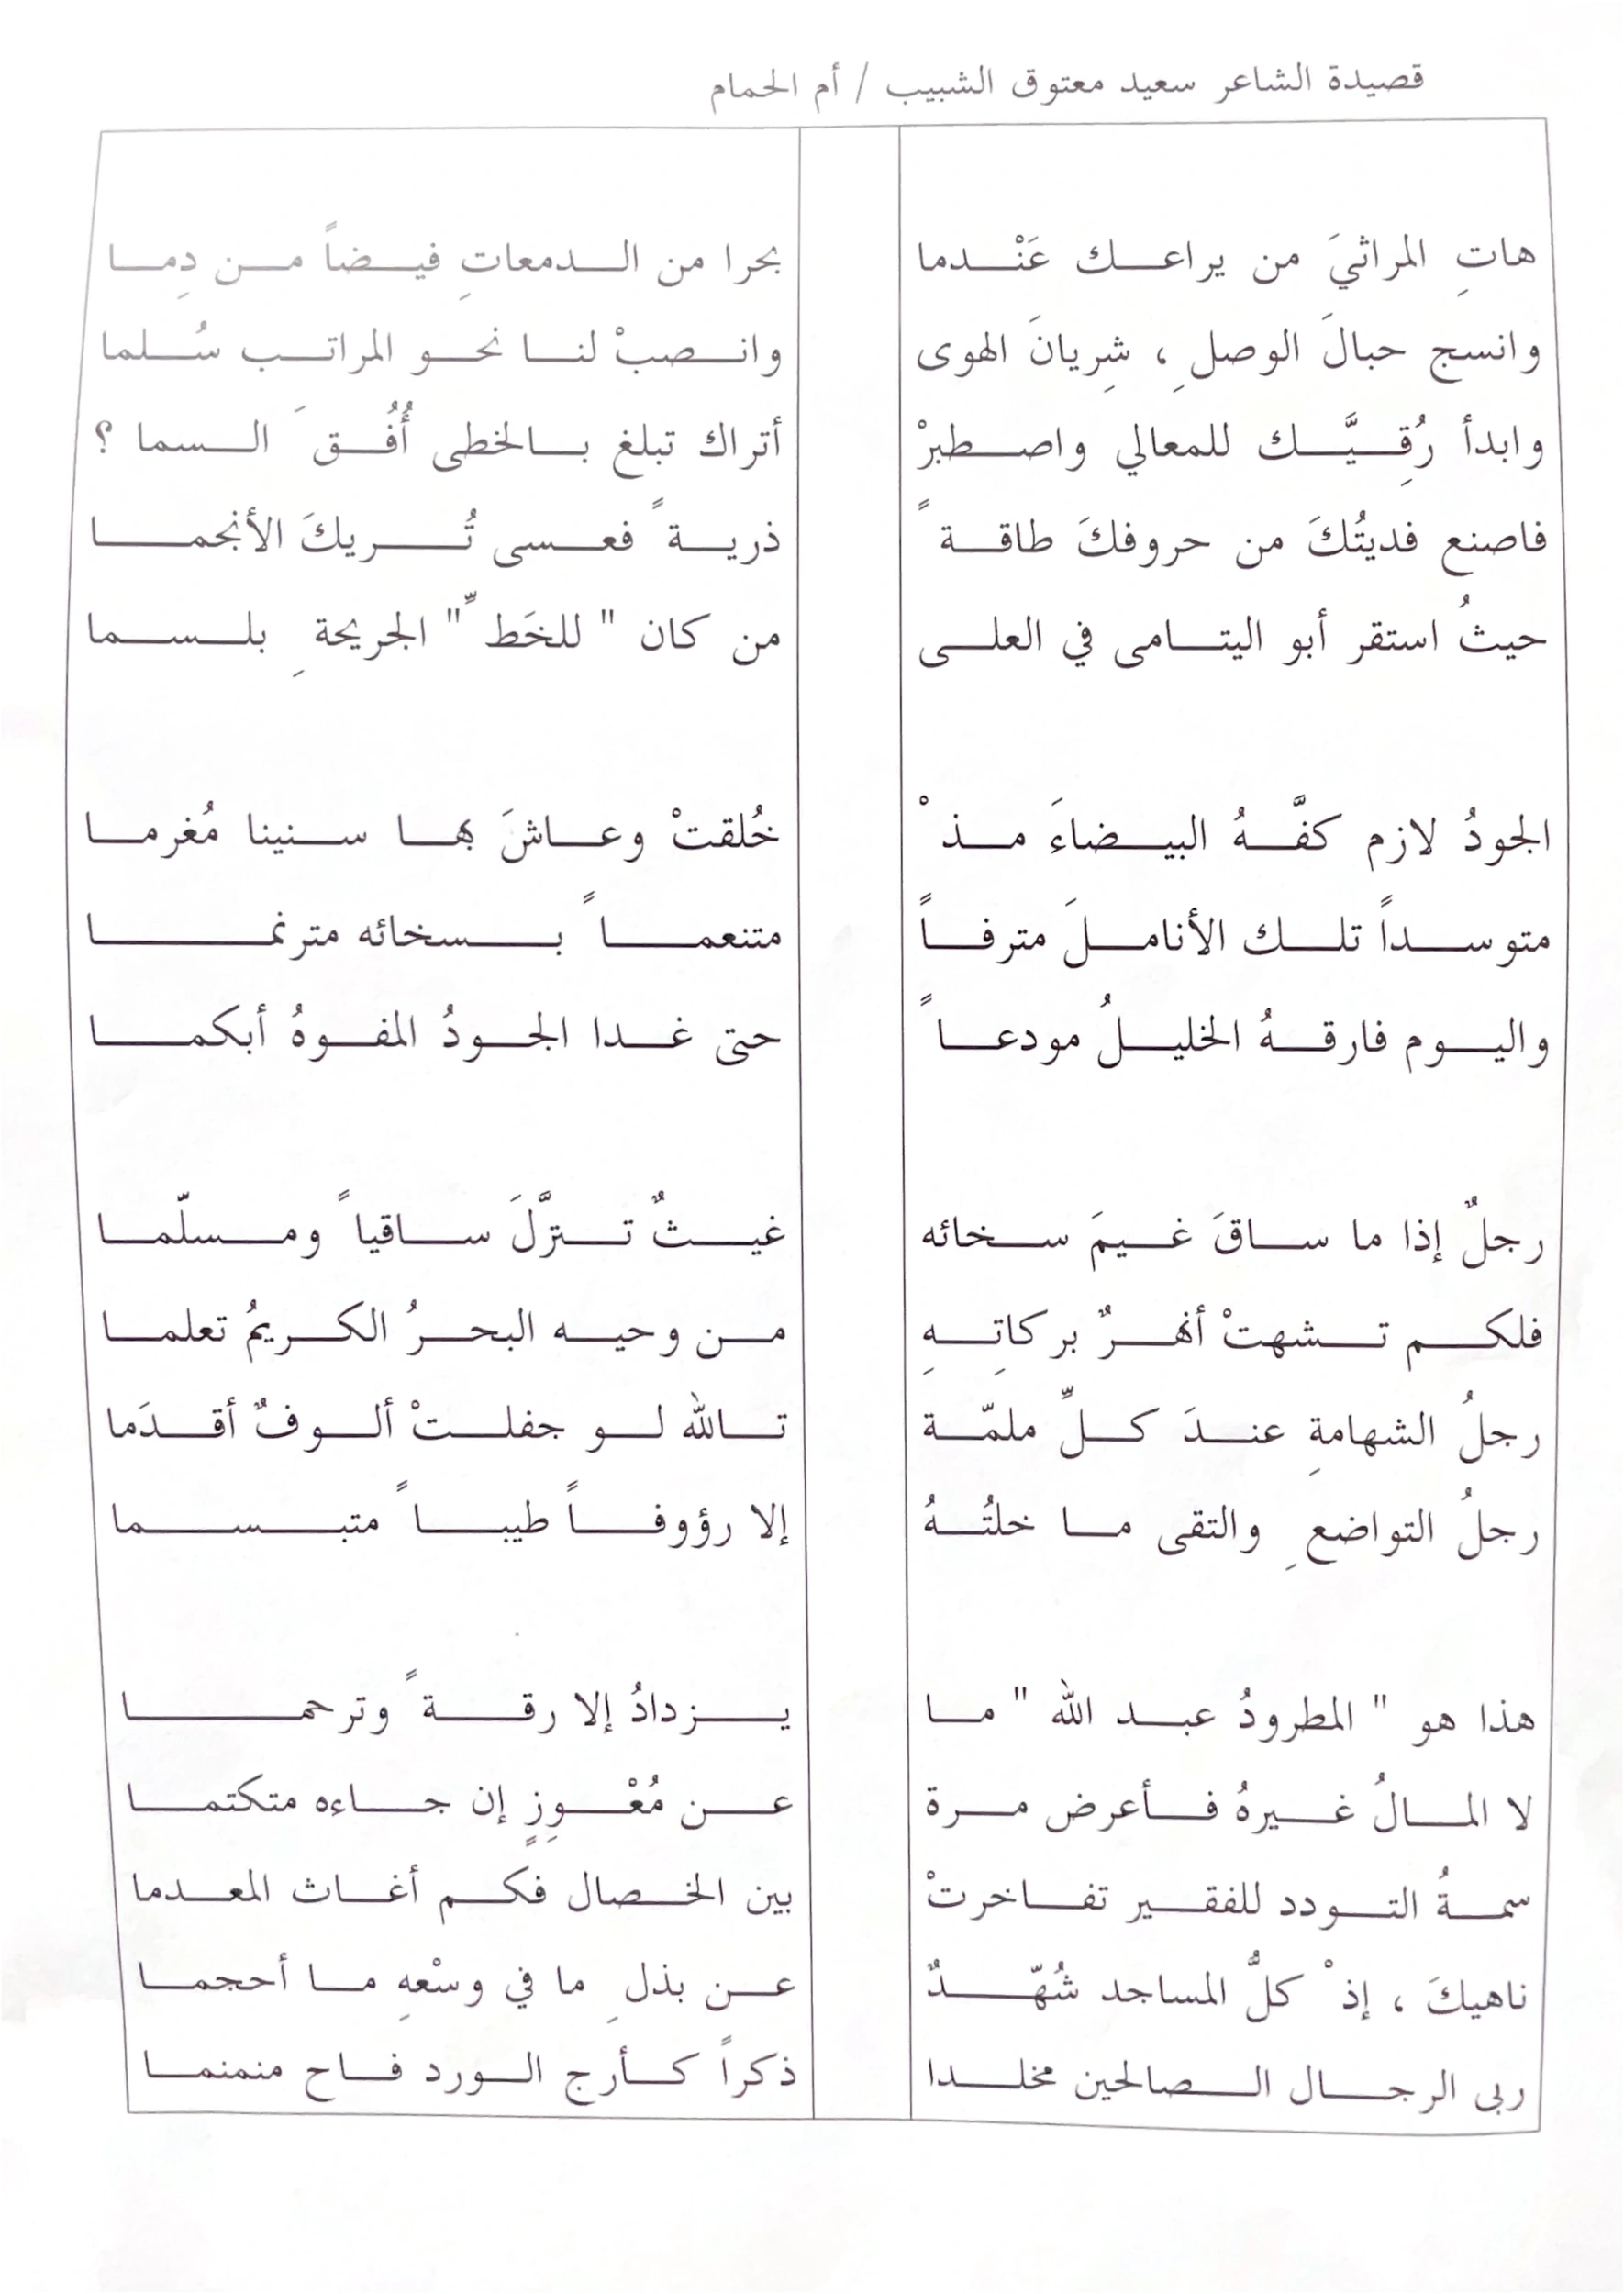 قصيدة الشاعر سعيد معتوق الشبيب / أم الحمام
هاتِ المراثيَ من يراعك عَنْدما بحرا من الدمعاتِ فيضاً من دِما
وانسج حبالَ الوصلِ ، شِريانَ الهوى وانصبْ لنا نحو المراتب سُلما
وابدأ رُقِيَّك للمعالي واصطبرْ أتراك تبلغ بالخطى أُفُقَ السما ؟
فاصنع فديتُكَ من حروفكَ طاقةً ذريةً فعسى تُريكَ الأنجما
حيثُ استقر أبو اليتامى في العلى من كان " للخَطِّ " الجريحةِ بلسما
الجودُ لازم كفَّهُ البيضاءَ مذْ خُلقتْ وعاشَ بها سنينا مُغرما
متوسداً تلك الأناملَ مترفاً متنعماً بسخائه مترنما
واليوم فارقهُ الخليلُ مودعاً حتى غدا الجودُ المفوهُ أبكما
رجلٌ إذا ما ساقَ غيمَ سخائه غيثٌ تنزَّلَ ساقياً ومسلّما
فلكم تشهتْ أنهرٌ بركاتِهِ من وحيه البحرُ الكريمُ تعلما
رجلُ الشهامةِ عندَ كلِّ ملمّة تالله لو جفلتْ ألوفٌ أقدَما
رجلُ التواضعِ والتقى ما خلتُهُ إلا رؤوفاً طيباً متبسما
هذا هو " المطرودُ عبد الله " ما يزدادُ إلا رقةً وترحما
لا المالُ غيرهُ فأعرض مرة عن مُعْوِزٍ إن جاءه متكتما
سمةُ التودد للفقير تفاخرتْ بين الخصال فكم أغاث المعدما
ناهيكَ ، إذْ كلُّ المساجد شُهّدٌ عن بذلِ ما في وسْعهِ ما أحجما
ربى الرجال الصالحين مخلدا ذكراً كأرج الورد فاح منمنما